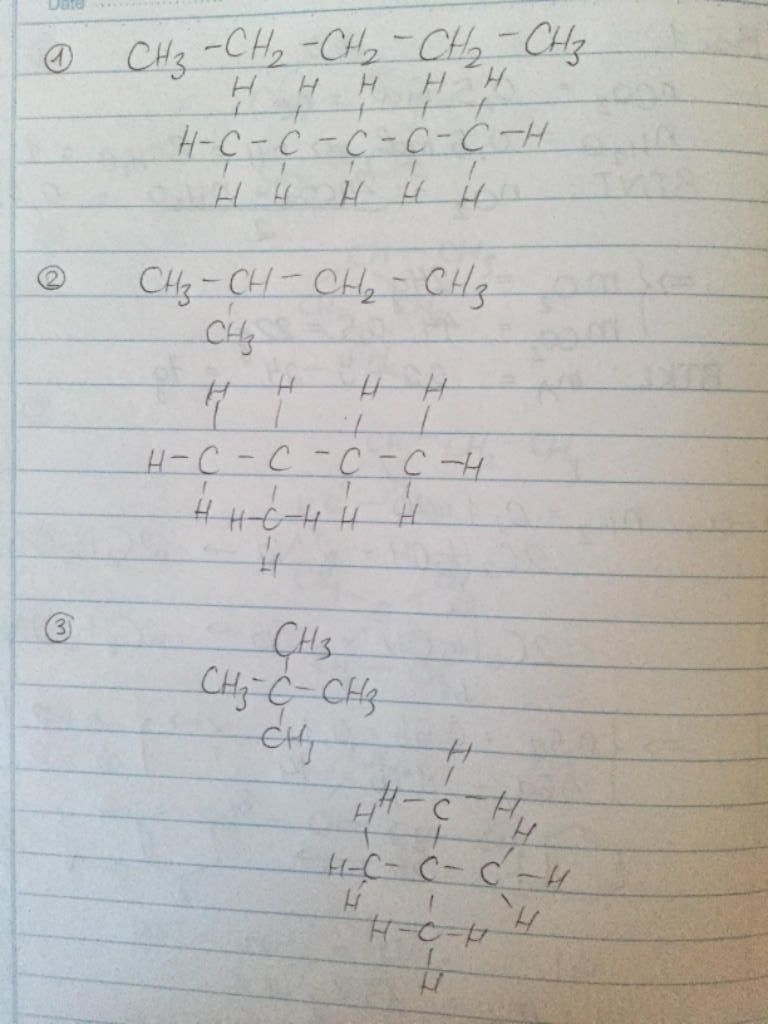 Date
① CH₃ - CH₂ - CH₂ - CH₂ - CH₃
H H H H H
H - C - C - C - C - C - H
H H H H H
② CH₃ - CH - CH₂ - CH₃
CH₃
H H H H
H - C - C - C - C - H
H H - C - H H H
H
③ CH₃
CH₃ - C - CH₃
CH₃
H
H - C - H
H H
H - C - C - C - H
H H
H - C - H
H